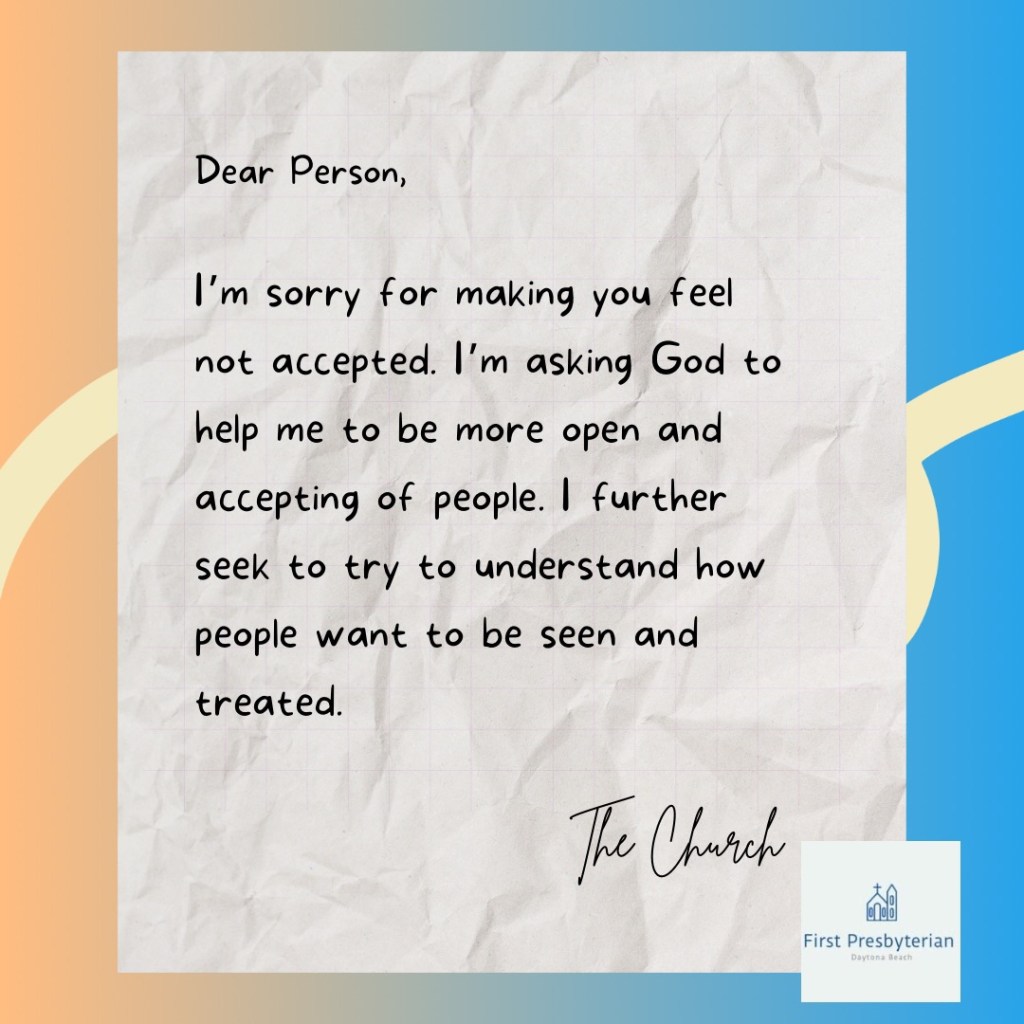 Dear Person,
I'm sorry for making you feel
not accepted. I'm asking God to
help me to be more open and
accepting of people. I further
seek to try to understand how
people want to be seen and
treated.
The Church
First Presbyterian
Daytona Beach